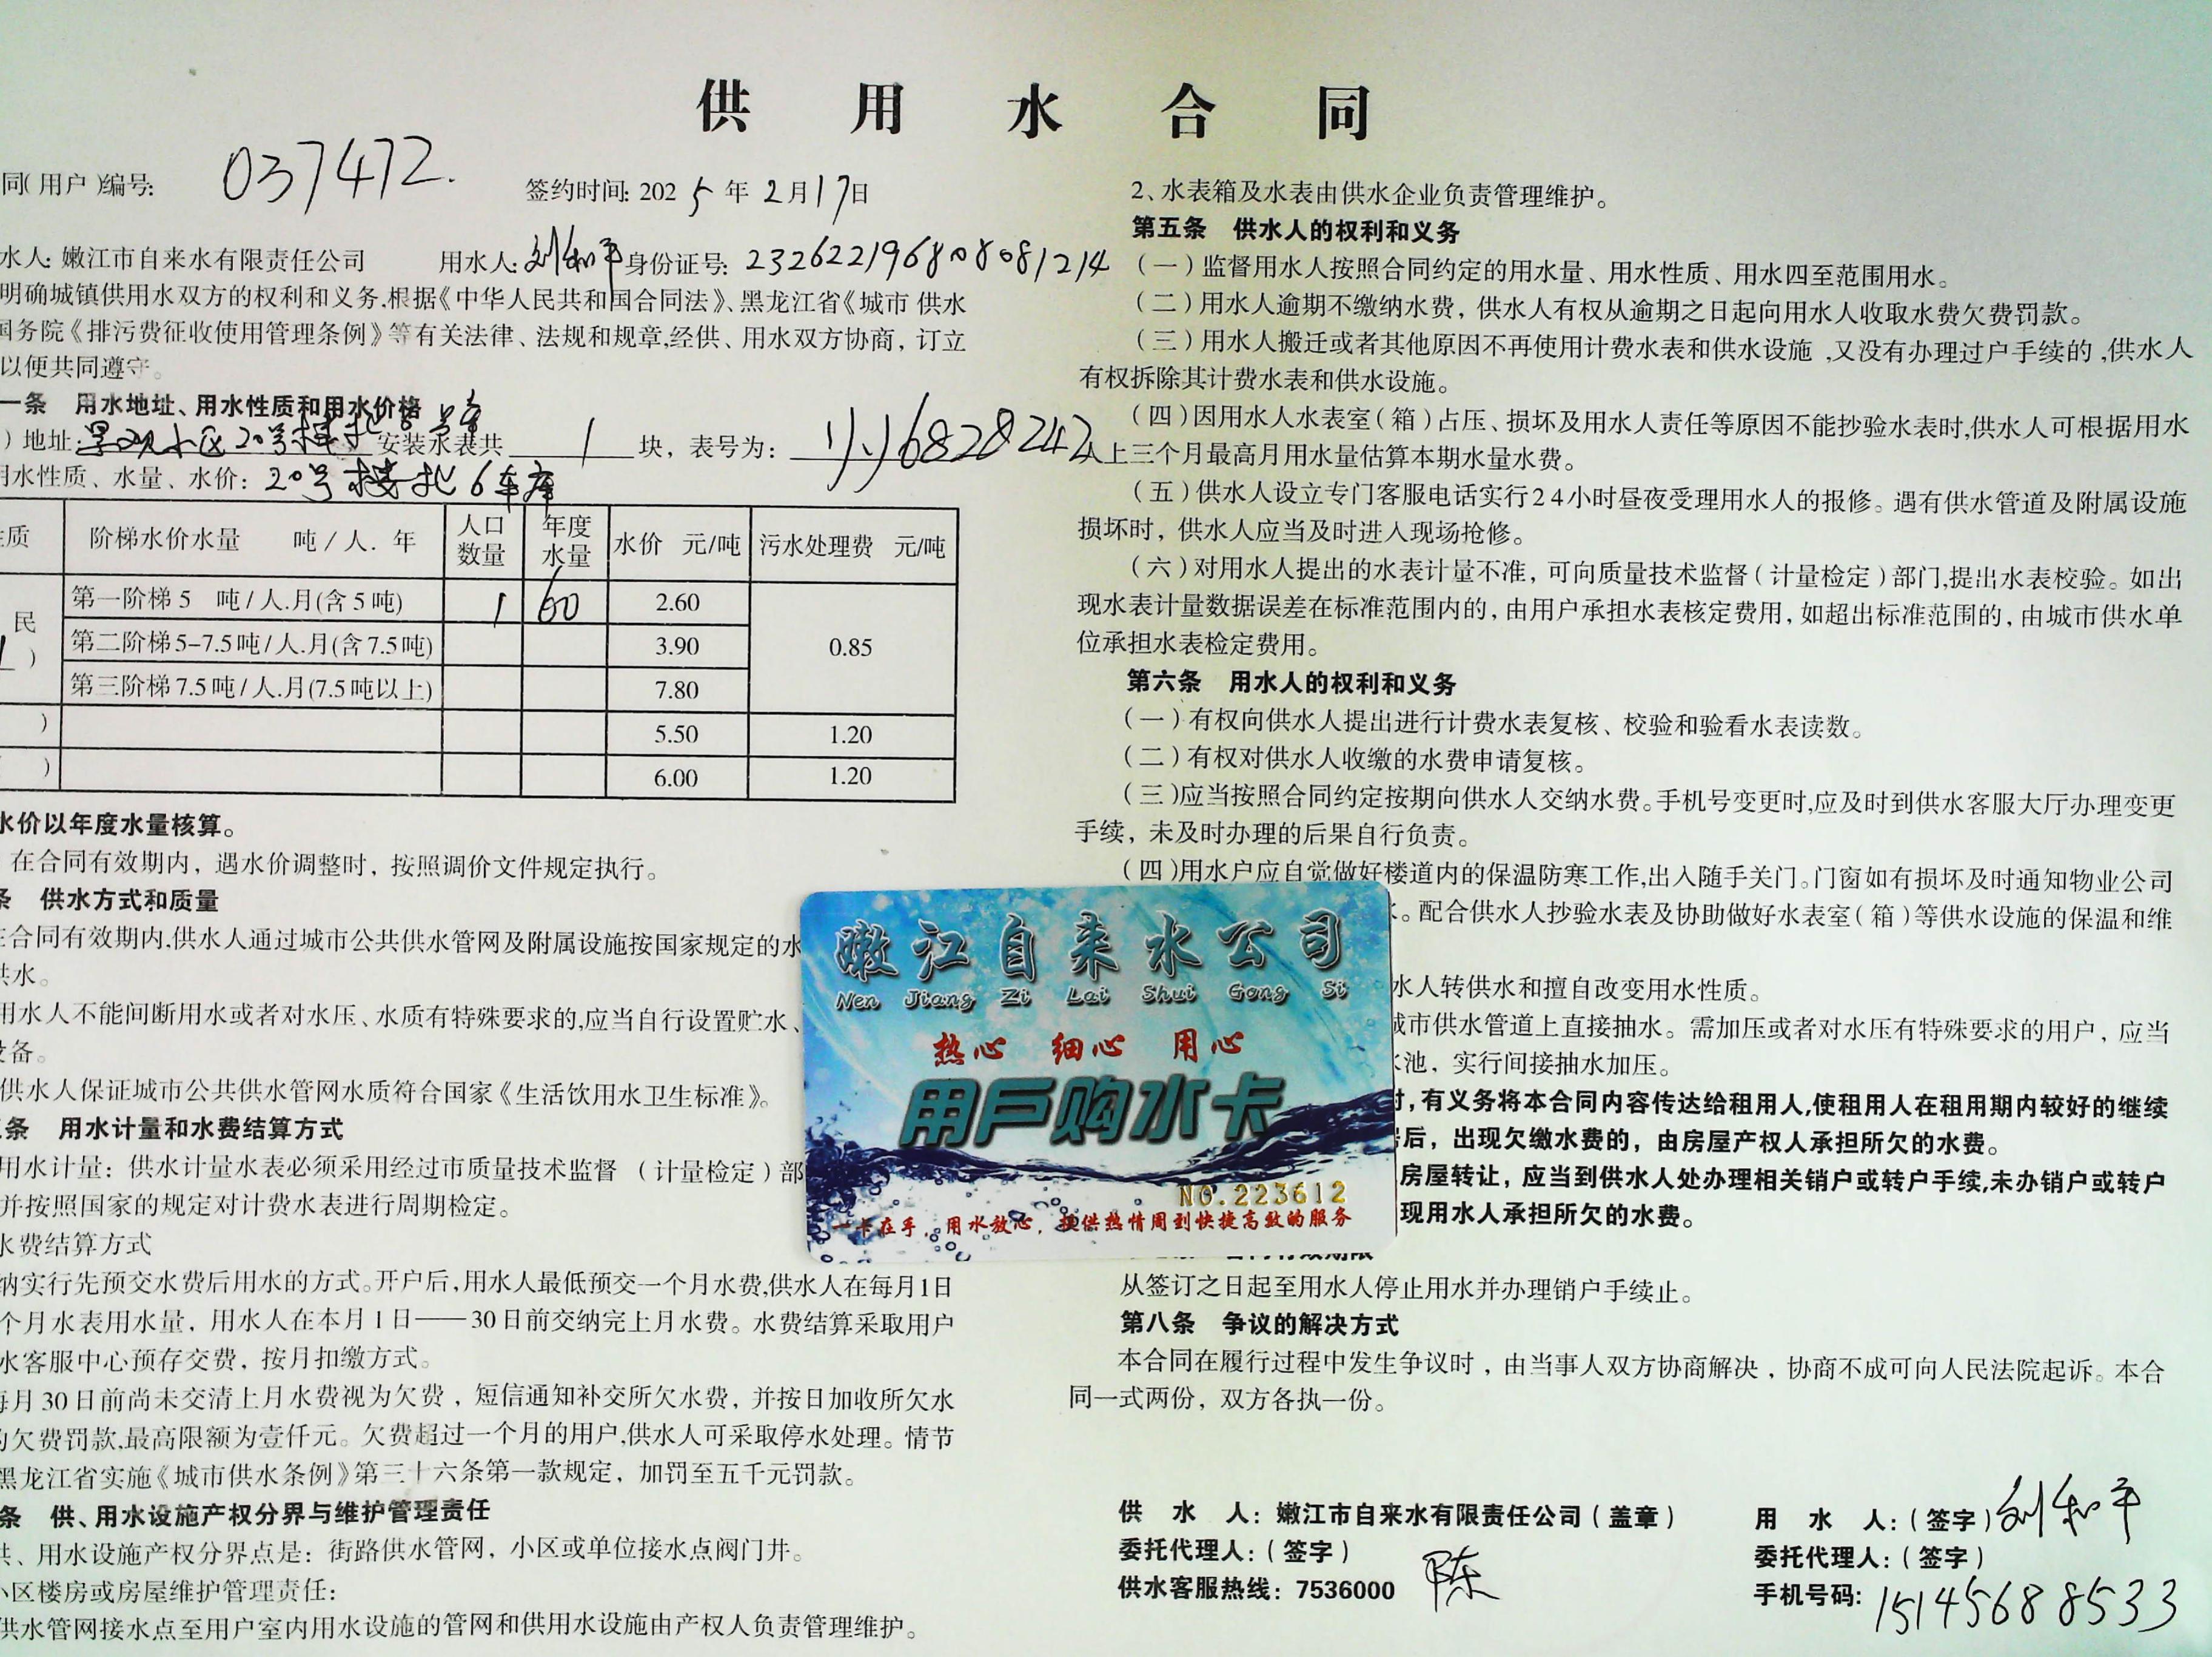 供用水合同
同(用户)编号: 037472.
签约时间: 2025年2月17日
水人: 嫩江市自来水有限责任公司 用水人: 刘和平 身份证号: 232622196808081214
明确城镇供用水双方的权利和义务,根据《中华人民共和国合同法》、黑龙江省《城市 供水
国务院《排污费征收使用管理条例》等有关法律、法规和规章,经供、用水双方协商，订立
以便共同遵守。
一条 用水地址、用水性质和用水价格
）地址: 景观小区20号楼北6号库 安装水表共 1 块，表号为: 6828242
用水性质、水量、水价: 20号楼北6车库
性质 阶梯水价水量 吨/人.年 人口数量 年度水量 水价 元/吨 污水处理费 元/吨
民 第一阶梯5 吨/人.月(含5吨) 1 60 2.60 0.85
第二阶梯5-7.5吨/人.月(含7.5吨) 3.90
第三阶梯7.5吨/人.月(7.5吨以上) 7.80
) 5.50 1.20
) 6.00 1.20
水价以年度水量核算。
在合同有效期内，遇水价调整时，按照调价文件规定执行。
条 供水方式和质量
在合同有效期内,供水人通过城市公共供水管网及附属设施按国家规定的水
供水。
用水人不能间断用水或者对水压、水质有特殊要求的,应当自行设置贮水、
设备。
供水人保证城市公共供水管网水质符合国家《生活饮用水卫生标准》。
条 用水计量和水费结算方式
用水计量：供水计量水表必须采用经过市质量技术监督 （计量检定）部
并按照国家的规定对计费水表进行周期检定。
水费结算方式
纳实行先预交水费后用水的方式。开户后,用水人最低预交一个月水费,供水人在每月1日
个月水表用水量，用水人在本月1日——30日前交纳完上月水费。水费结算采取用户
水客服中心预存交费，按月扣缴方式。
每月30日前尚未交清上月水费视为欠费，短信通知补交所欠水费，并按日加收所欠水
的欠费罚款,最高限额为壹仟元。欠费超过一个月的用户,供水人可采取停水处理。情节
黑龙江省实施《城市供水条例》第三十六条第一款规定，加罚至五千元罚款。
条 供、用水设施产权分界与维护管理责任
供、用水设施产权分界点是：街路供水管网，小区或单位接水点阀门井。
小区楼房或房屋维护管理责任：
供水管网接水点至用户室内用水设施的管网和供用水设施由产权人负责管理维护。
2、水表箱及水表由供水企业负责管理维护。
第五条 供水人的权利和义务
（一）监督用水人按照合同约定的用水量、用水性质、用水四至范围用水。
（二）用水人逾期不缴纳水费，供水人有权从逾期之日起向用水人收取水费欠费罚款。
（三）用水人搬迁或者其他原因不再使用计费水表和供水设施，又没有办理过户手续的，供水人
有权拆除其计费水表和供水设施。
（四）因用水人水表室（箱）占压、损坏及用水人责任等原因不能抄验水表时,供水人可根据用水
人上三个月最高月用水量估算本期水量水费。
（五）供水人设立专门客服电话实行24小时昼夜受理用水人的报修。遇有供水管道及附属设施
损坏时，供水人应当及时进入现场抢修。
（六）对用水人提出的水表计量不准，可向质量技术监督（计量检定）部门,提出水表校验。如出
现水表计量数据误差在标准范围内的，由用户承担水表核定费用，如超出标准范围的，由城市供水单
位承担水表检定费用。
第六条 用水人的权利和义务
（一）有权向供水人提出进行计费水表复核、校验和验看水表读数。
（二）有权对供水人收缴的水费申请复核。
（三）应当按照合同约定按期向供水人交纳水费。手机号变更时,应及时到供水客服大厅办理变更
手续，未及时办理的后果自行负责。
（四）用水户应自觉做好楼道内的保温防寒工作,出入随手关门。门窗如有损坏及时通知物业公司
。配合供水人抄验水表及协助做好水表室（箱）等供水设施的保温和维
水人转供水和擅自改变用水性质。
城市供水管道上直接抽水。需加压或者对水压有特殊要求的用户，应当
水池，实行间接抽水加压。
时,有义务将本合同内容传达给租用人,使租用人在租用期内较好的继续
后，出现欠缴水费的，由房屋产权人承担所欠的水费。
房屋转让，应当到供水人处办理相关销户或转户手续,未办销户或转户
现用水人承担所欠的水费。
从签订之日起至用水人停止用水并办理销户手续止。
第八条 争议的解决方式
本合同在履行过程中发生争议时，由当事人双方协商解决，协商不成可向人民法院起诉。本合
同一式两份，双方各执一份。
供 水 人：嫩江市自来水有限责任公司（盖章）
委托代理人：（签字） 陈
供水客服热线：7536000
用 水 人：（签字） 刘和平
委托代理人：（签字）
手机号码: 15145688533
嫩江自来水公司
Nen Jiang Zi Lai Shui Gong Si
热心 细心 用心
用户购水卡
NO.223612
一卡在手，用水放心，提供热情周到快捷高效的服务